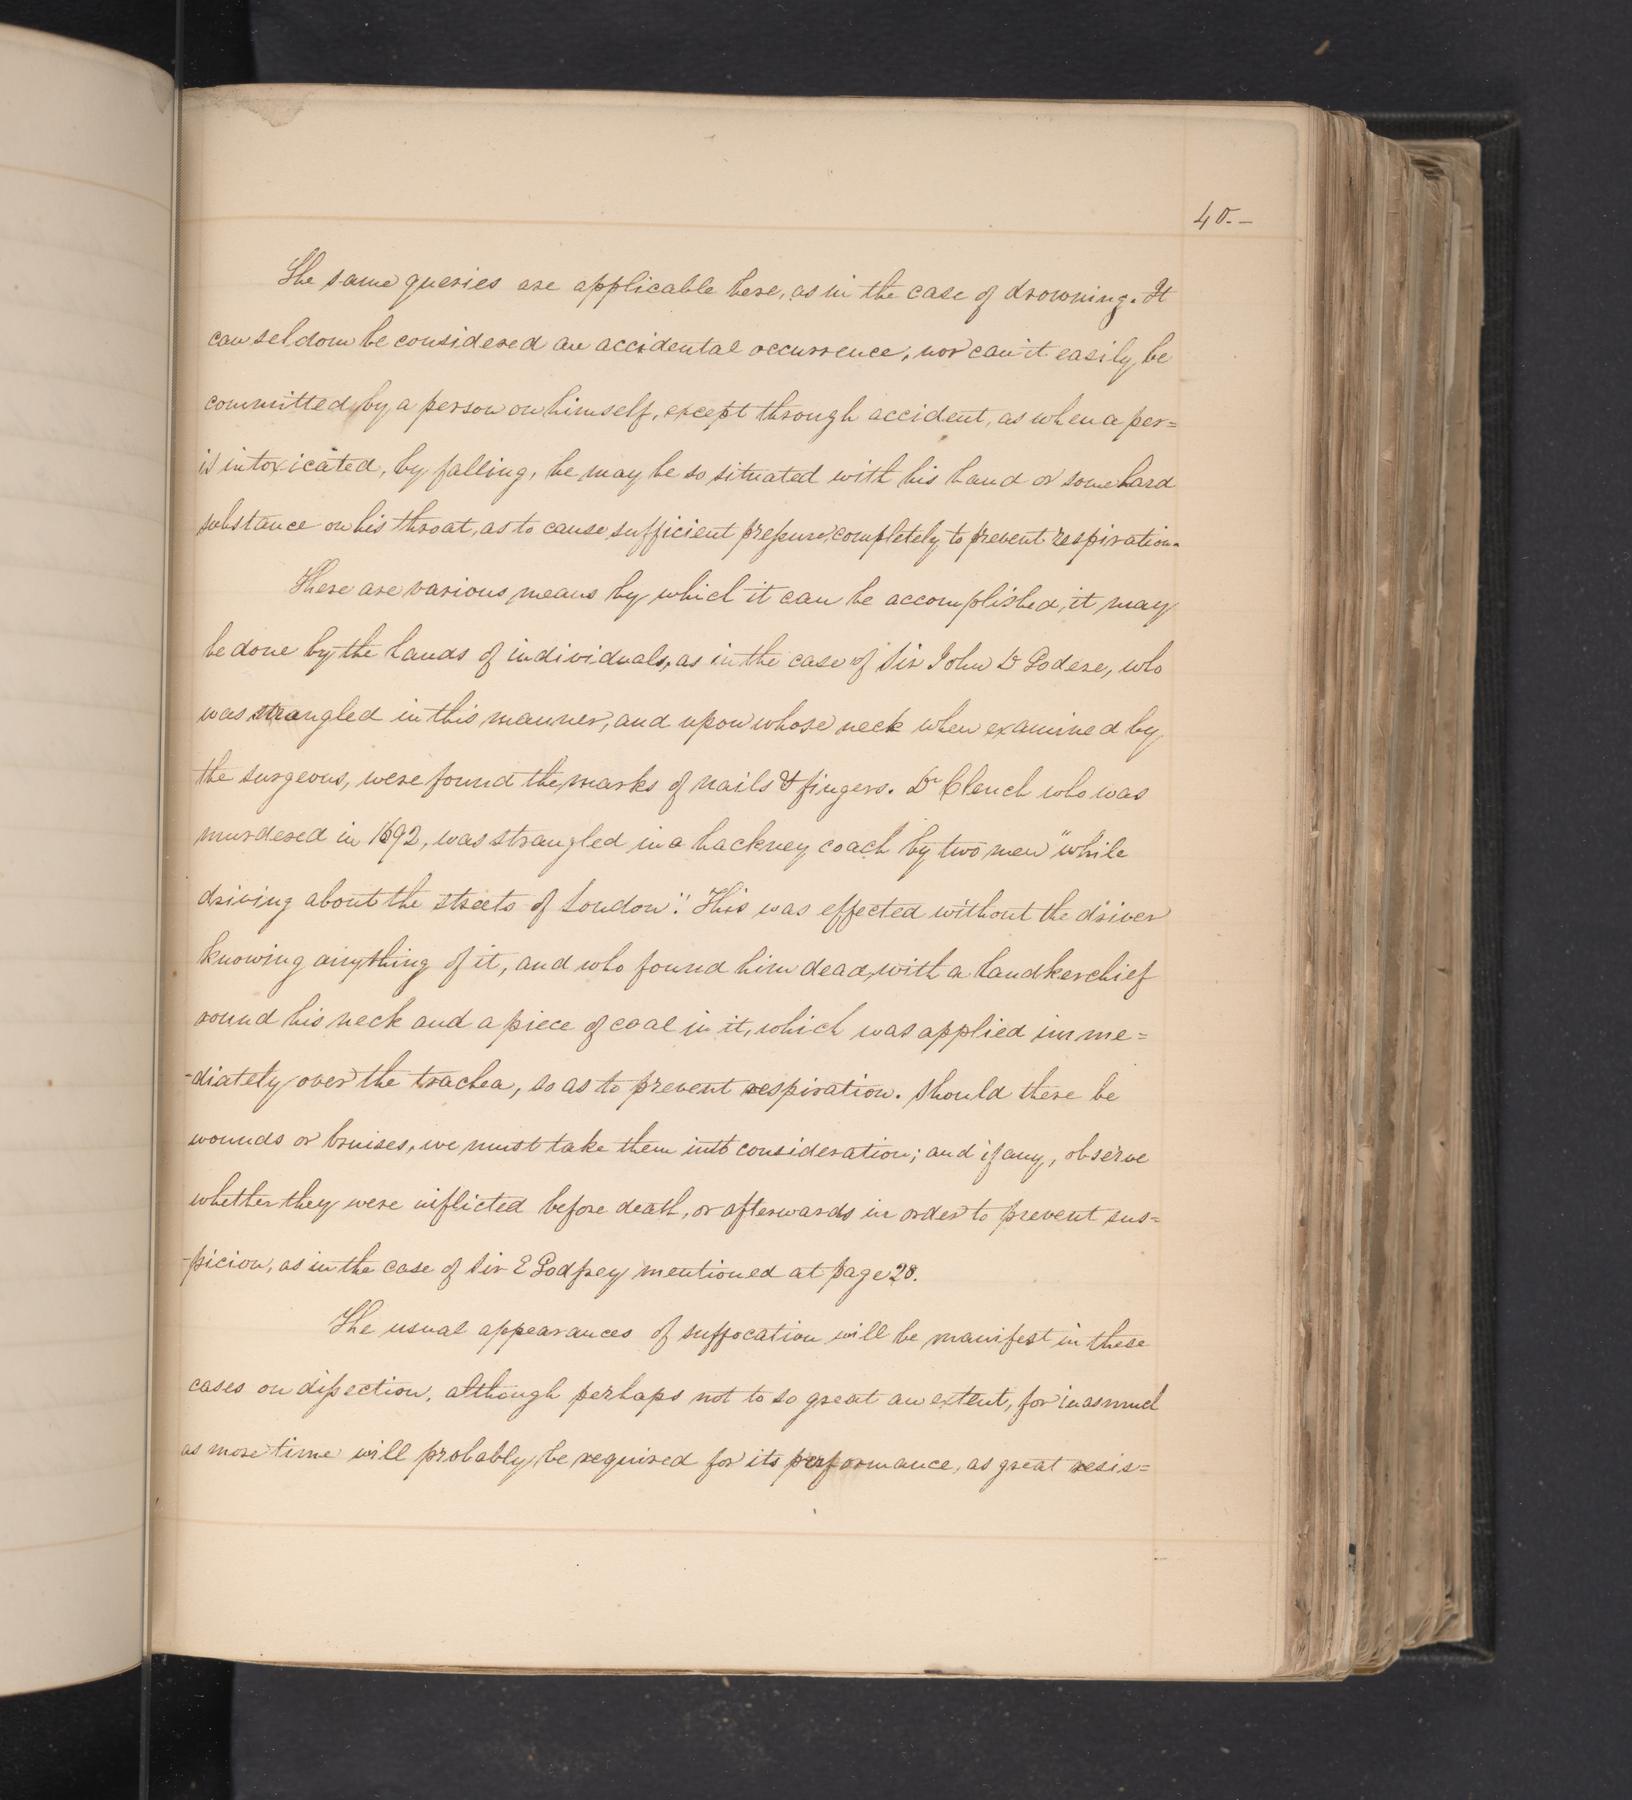 40.-
The same queries are applicable here, as in the case of drowning. It
can seldom be considered an accidental occurrence, nor can it easily be
committed by a person on himself, except through accident, as when a per=
is intoxicated, by falling, he may be so situated with his hand or some hard
substance on his throat, as to cause sufficient preſsure, completely to prevent respiration.
There are various means by which it can be accomplished, it may
be done by the hands of individuals, as in the case of Sir John D Godere, who
was strangled in this manner, and upon whose neck when examined by
the surgeons, were found the marks of nails & fingers. Dr Clench who was
murdered in 1692, was strangled in a hackney coach by two men "while
driving about the streets of London". This was effected without the driver
knowing anything of it, and who found him dead, with a handkerchief
round his neck and a piece of coal in it, which was applied imme=
-diately over the trachea, so as to prevent respiration. Should there be
wounds or bruises, we must take them into consideration; and if any, observe
whether they were inflicted before death, or afterwards in order to prevent sus=
-picion, as in the case of Sir E Godfrey mentioned at page 28.
The usual appearances of suffocation will be manifest in these
cases on diſsection, although perhaps not to so great an extent, for inasmuch
as more time will probably be required for its performance, as great resis=